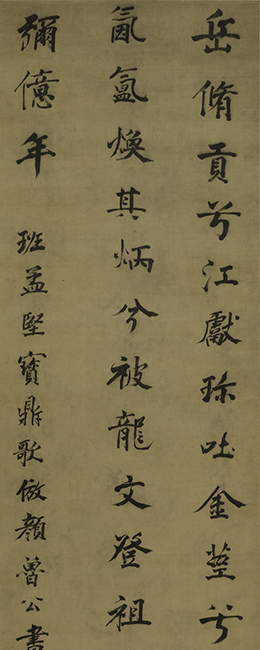 岳脩貢兮江獻珎吐金莖兮
氤氳煥其炳兮被龍文登祖
彌億年 班孟堅寶鼎歌倣顏魯公書